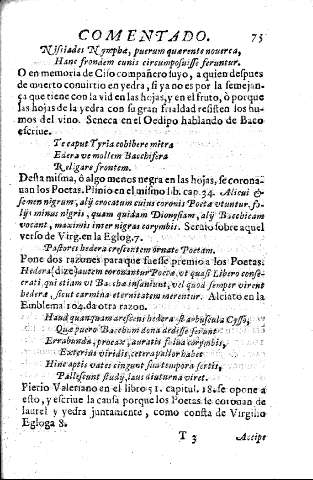 COMENTADO. 75
Nisiades Nymphæ, puerum quærente noverca,
Hanc frondem cunis circumposuisse feruntur.
O en memoria de Ciso compañero suyo, a quien despues
de muerto convirtio en yedra, si ya no es por la semejan-
ça que tiene con la vid en las hojas, y en el fruto, ò porque
las hojas de la yedra con su gran frialdad resisten los hu-
mos del vino. Seneca en el Oedipo hablando de Baco
escrive.
Te caput Tyria cohibere mitra
Edera ve mollem Bacchifera
Religare frontem.
Desta misma, ò algo menos negra en las hojas, se corona-
uan los Poetas. Plinio en el mismo lib. cap. 34. Alicui &
semen nigrum, alij crocatum cuius coronis Poetæ vtuntur, fo-
lijs minus nigris, quam quidam Dionysiam, alij Bacchicam
vocant, maximis inter nigras corymbis. Servio sobre aquel
verso de Virg. en la Eglog. 7.
Pastores hedera crescentem ornate Poetam.
Pone dos razones para que fuesse premio a los Poetas.
Hedera (dize) autem coronantur Poetæ, vt quasi Libero conse-
crati, qui etiam vt Bacchæ insaniunt, vel quod semper virent
hederæ, sicut carmina eternitatem merentur. Alciato en la
Emblema 204. da otra razon.
Haud quanquam arescens hederæ est arbuscula Cysso,
Quæ puero Bacchum dona dedisse ferunt
Errabunda, procax, auratis fulua corymbis,
Exterius viridis, cetera pallor habet
Hinc aptis vates cingunt sua tempora sertis,
Pallescunt studijs, laus diuturna viret.
Pierio Valeriano en el libro 51. capitul. 18. se opone a
esto, y escriue la causa porque los Poetas se coronan de
laurel y yedra juntamente, como consta de Virgilio
Egloga 8.
T 3 Accipe